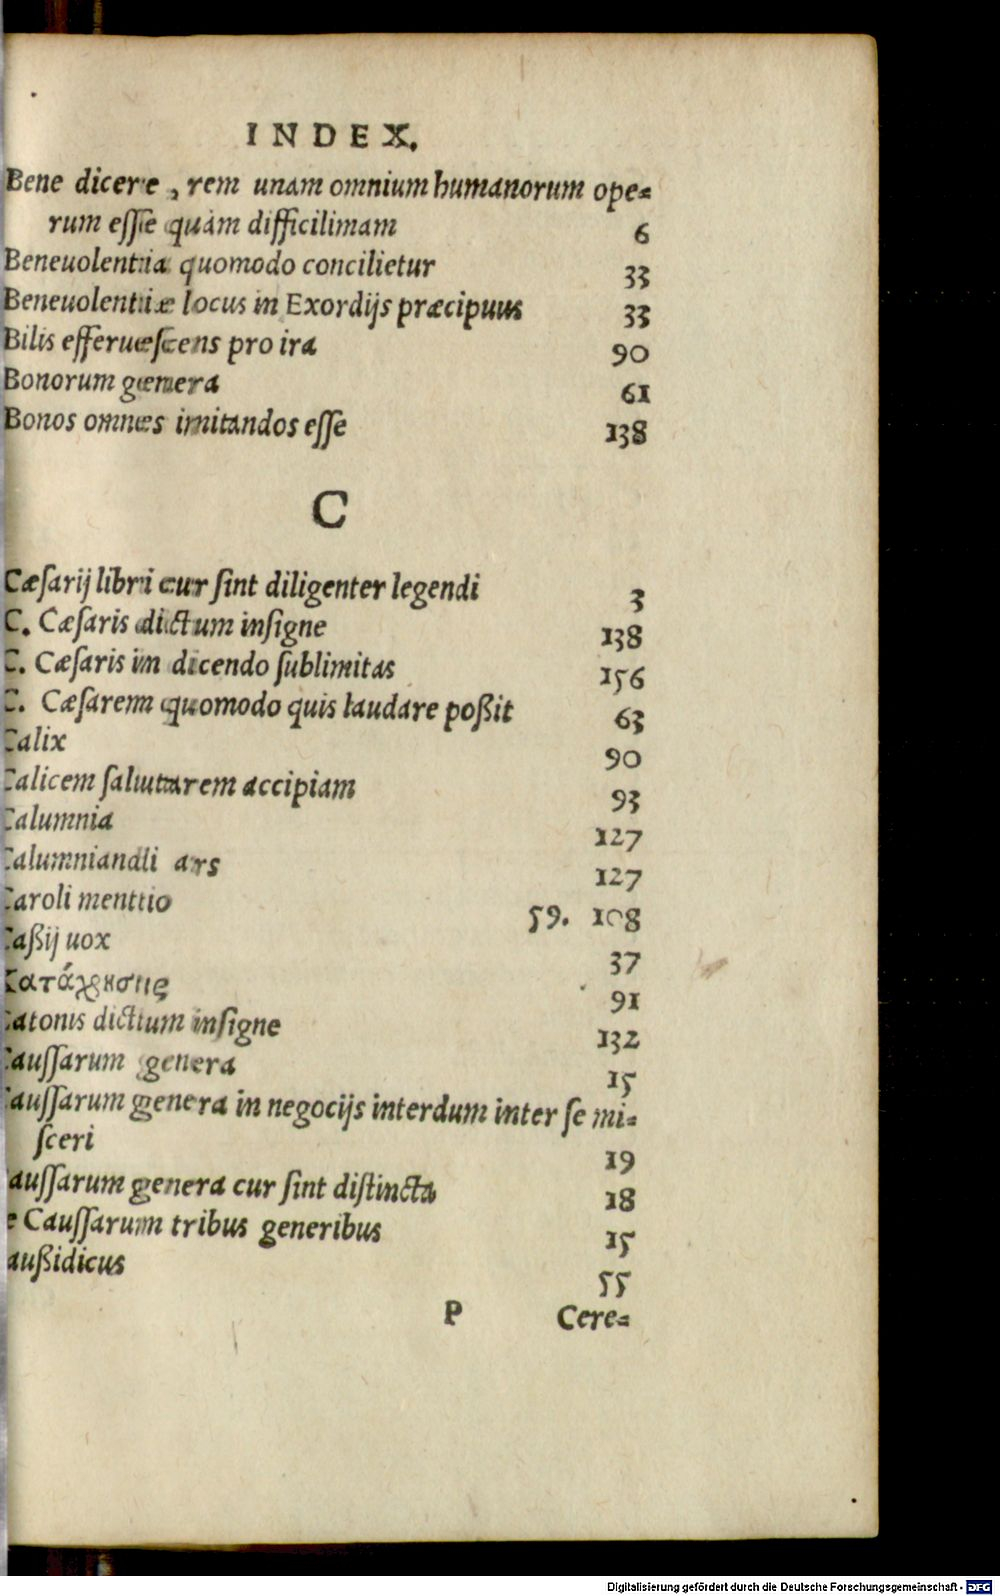 INDEX.
Bene dicere, rem unam omnium humanorum ope-
rum eſſe quàm difficilimam 6
Beneuolentia quomodo concilietur 33
Beneuolentiæ locus in Exordijs præcipuus 33
Bilis efferueſcens pro ira 90
Bonorum genera 61
Bonos omnes imitandos eſſe 138
C
Cæſarij libri cur ſint diligenter legendi 3
C. Cæſaris dictum inſigne 138
C. Cæſaris in dicendo ſublimitas 156
C. Cæſarem quomodo quis laudare poßit 63
Calix 90
Calicem ſalutarem accipiam 93
Calumnia 127
Calumniandi ars 127
Caroli mentio 59. 108
Caßij uox 37
Κατάχρησις 91
Catonis dictum inſigne 132
Cauſſarum genera 15
Cauſſarum genera in negocijs interdum inter ſe mi-
ſceri 19
Cauſſarum genera cur ſint diſtincta 18
e Cauſſarum tribus generibus 15
außidicus 55
P Cere-
Digitalisierung gefördert durch die Deutsche Forschungsgemeinschaft - DFG